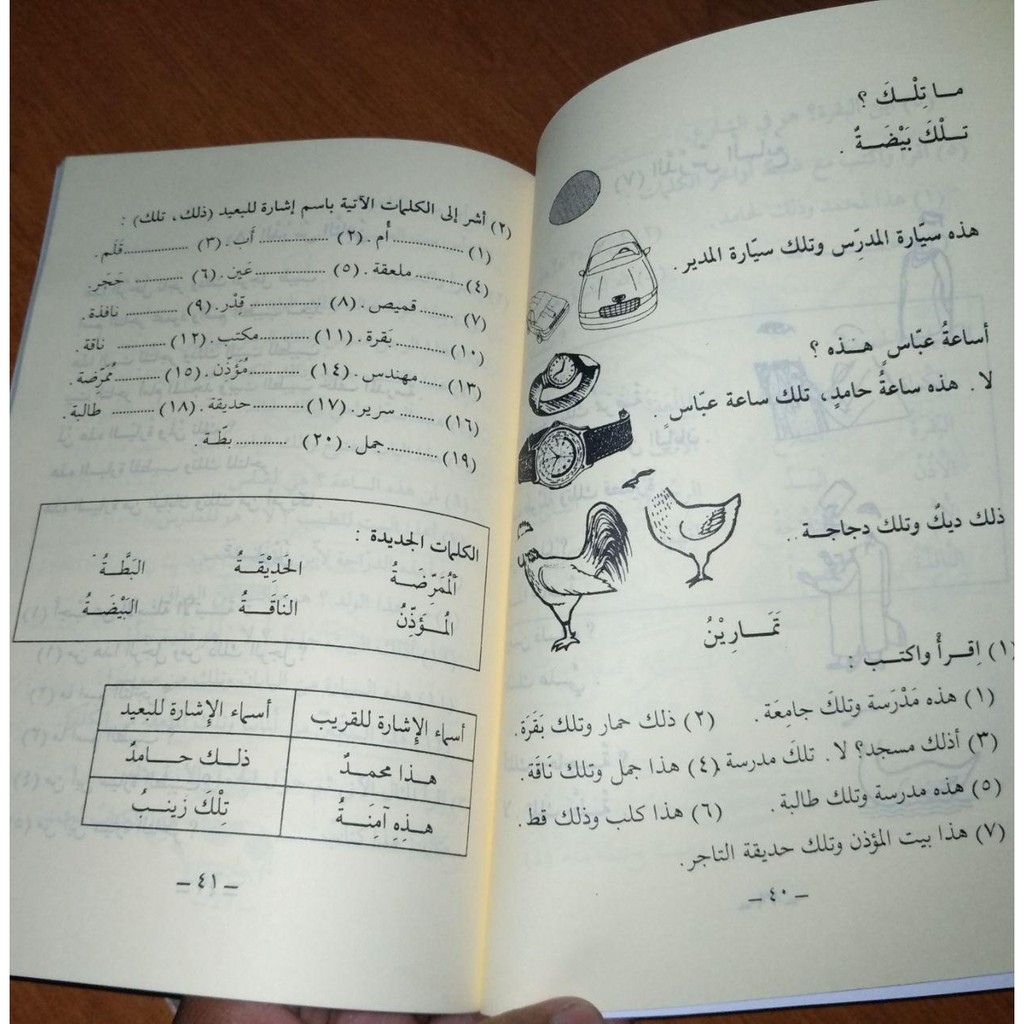 ما تِلْكَ ؟
تلْكَ بَيْضَةٌ .
هذه سيّارة المدرّس وتلك سيّارة المدير .
أساعةُ عبّاسٍ هذه ؟
لا . هذه ساعةُ حامدٍ، تلك ساعة عبّاسٍ .
ذلك ديكٌ وتلك دجاجة .
تَمَارِيْنُ
(١) اِقرأْ واكتب :
(١) هذه مَدْرَسة وتلكَ جامعَة . (٢) ذلك حمار وتلك بَقَرَة .
(٣) أذلك مسجد؟ لا . تلكَ مدرسة . (٤) هذا جمل وتلك نَاقَة .
(٥) هذه مدرسة وتلك طالبة . (٦) هذا كلب وذلك قط .
(٧) هذا بيت المؤذن وتلك حديقة التاجر .
– ٤٠ –
(٢) أشر إلى الكلمات الآتية باسم إشارة للبعيد (ذلك، تلك) :
(١) .............. أُم . (٢) .............. أَب . (٣) ............ قَلَم .
(٤) .......... ملعقة . (٥) .............. عَين . (٦) .......... حَجَر .
(٧) .......... قميص . (٨) .............. قِدْر . (٩) .......... نافذة .
(١٠) .......... بَقرة . (١١) .......... مكتب . (١٢) .......... ناقة .
(١٣) ..... مهندس . (١٤) .......... مُؤَذّن . (١٥) ........ مُمَرّضة .
(١٦) ........ سرير . (١٧) .......... حديقة . (١٨) ........ طالبة .
(١٩) .......... جمل . (٢٠) .......... بطّة .
الكلمات الجديدة :
اَلْمُمَرِّضَةُ الحَدِيْقَةُ البَطَّةُ
المُؤَذِّنُ النَاقَةُ البَيْضَةُ
أسماء الإِشارة للقريب أسماء الإِشارة للبعيد
هذا محمدٌ ذلك حامدٌ
هذِهِ آمِنَةُ تِلْكَ زينبُ
– ٤١ –